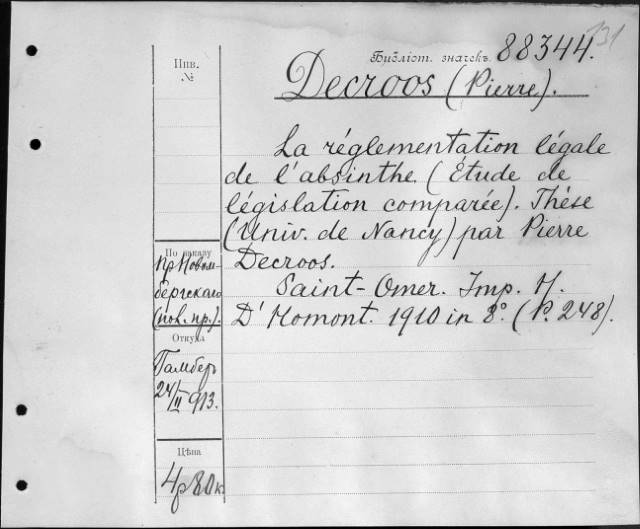 131
Библіот. значекъ 88344.
Инв.
№
Decroos (Pierre).
La réglementation légale
de l'absinthe. (Étude de
législation comparée). Thèse
(Univ. de Nancy) par Pierre
Decroos.
Saint-Omer. Imp. H.
D'Homont. 1910 in 8°. (P. 248).
По заказу
пр. Новом-
бергскаго
(пол. пр.).
Откуда
Гамберъ
24/II 913.
Цѣна
4р 80к